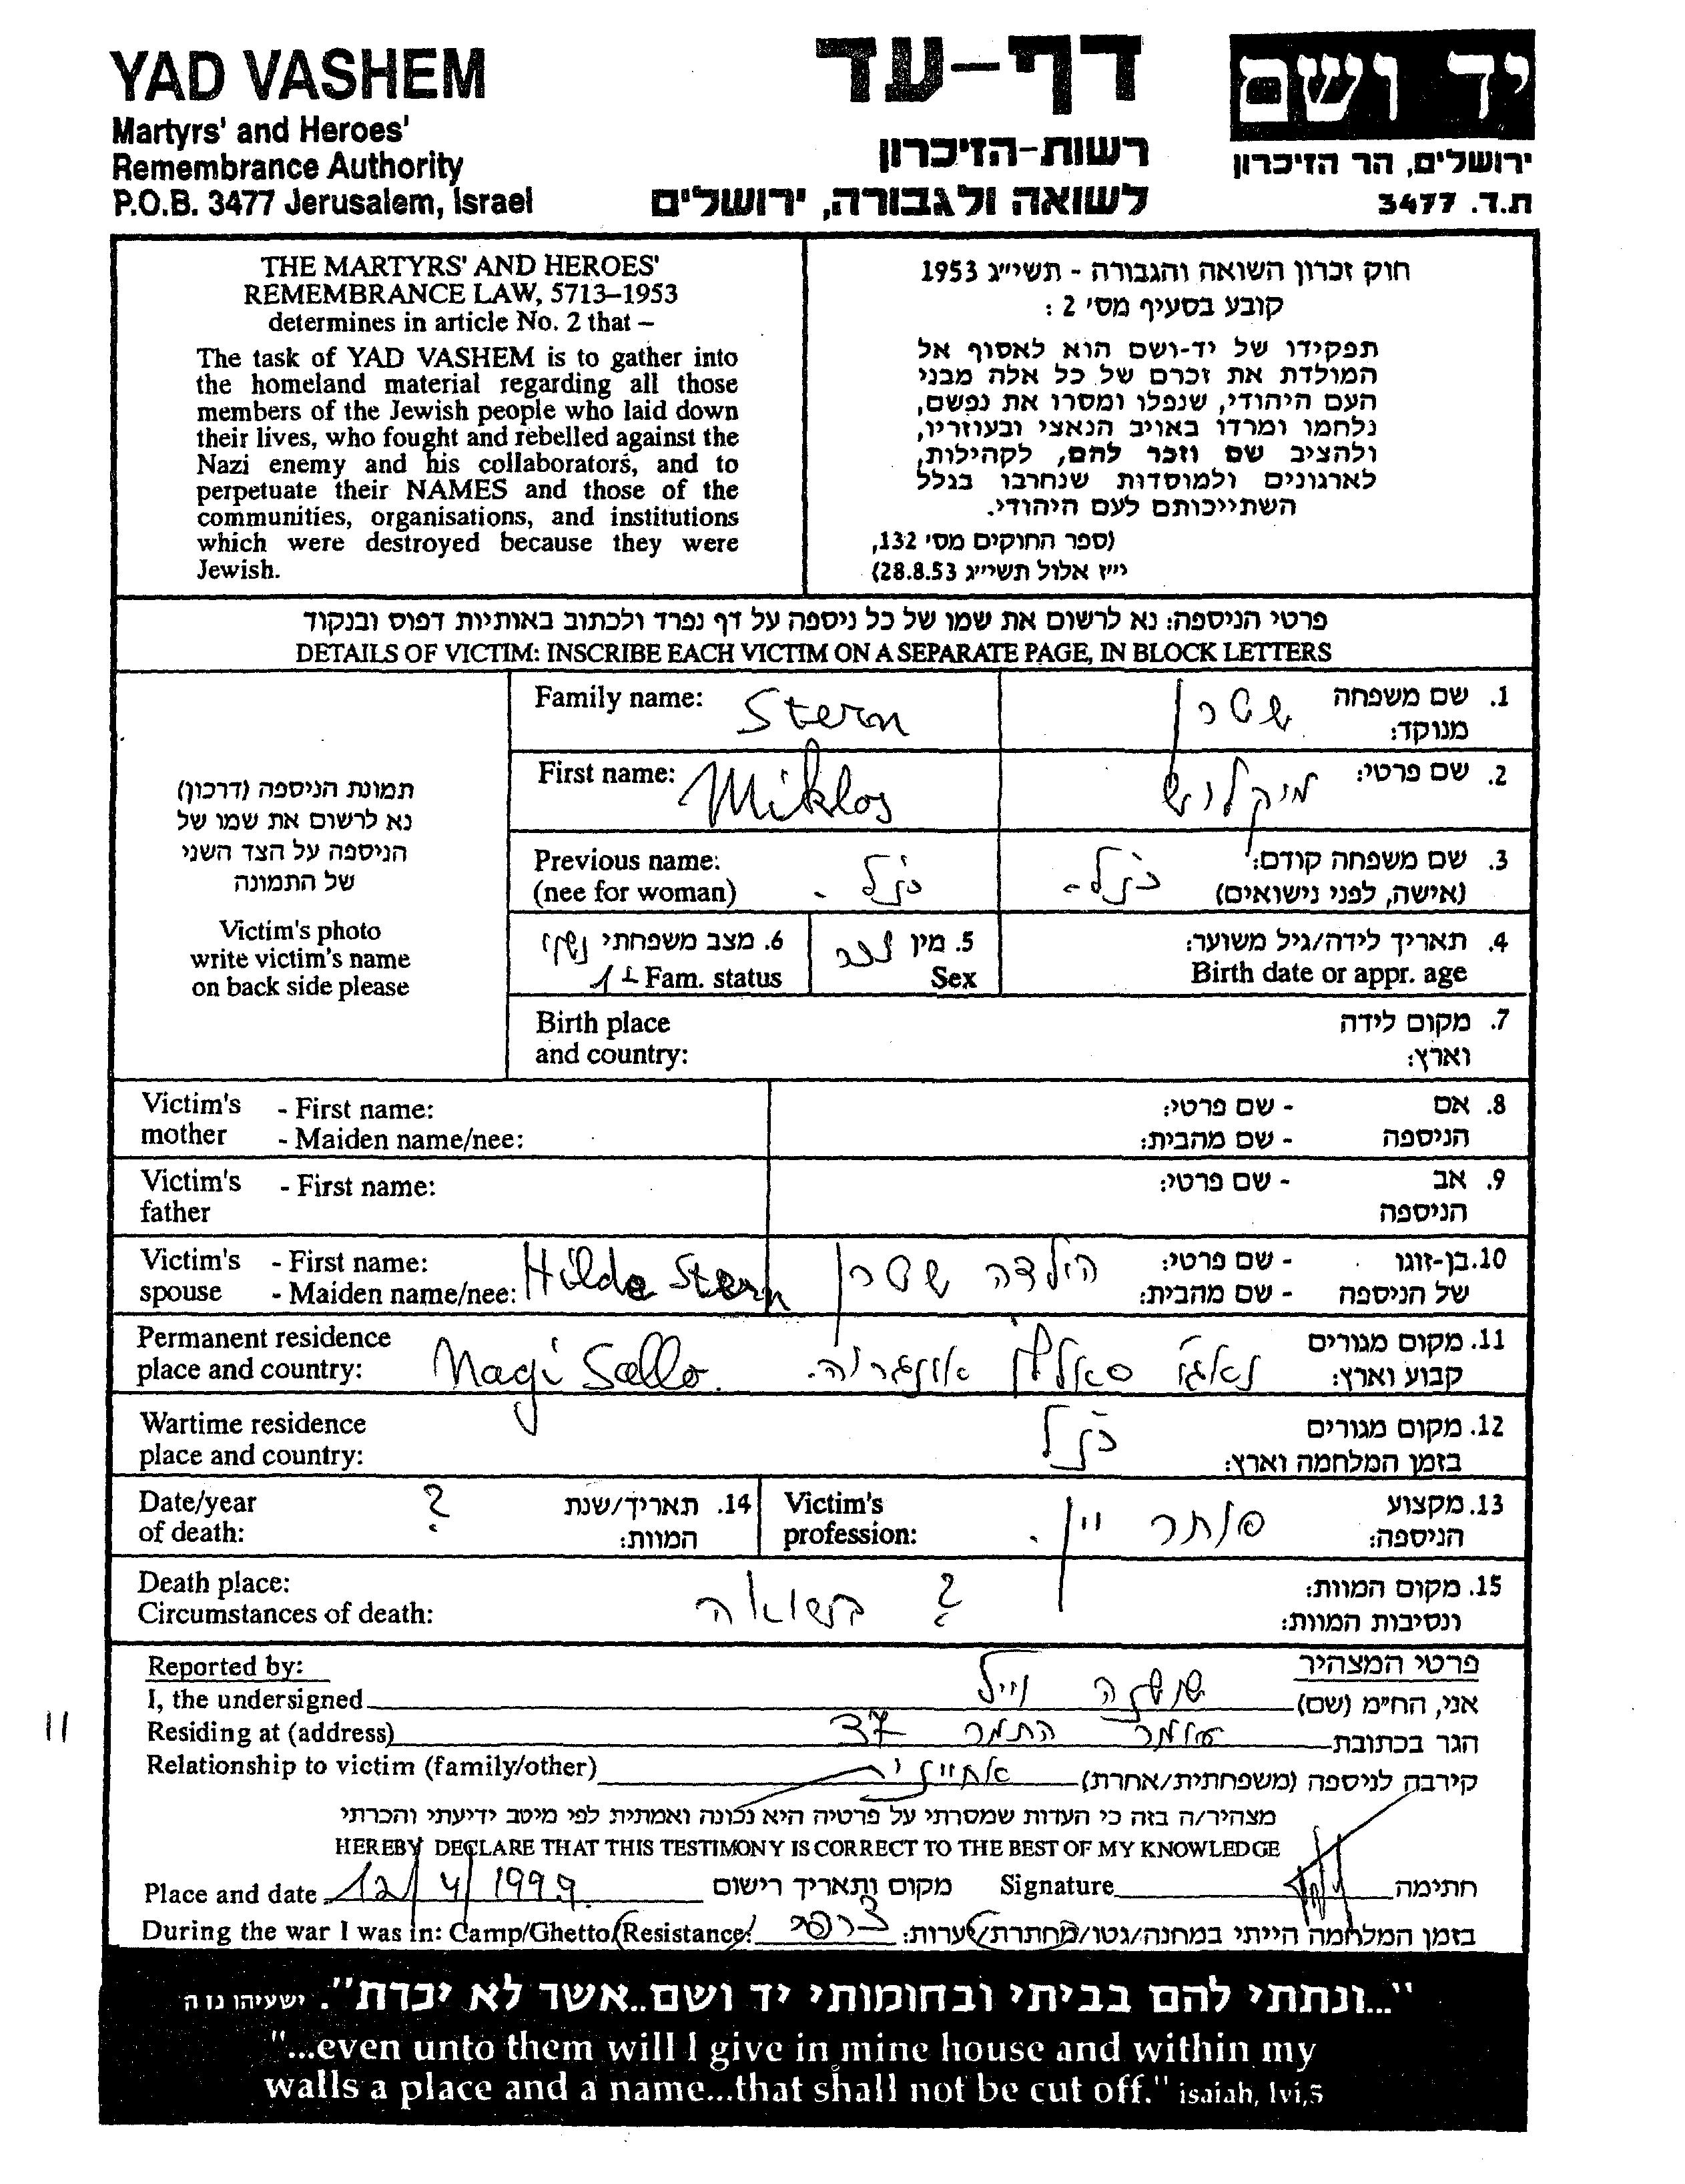 YAD VASHEM
Martyrs' and Heroes'
Remembrance Authority
P.O.B. 3477 Jerusalem, Israel
דף-עד
רשות-הזיכרון
לשואה ולגבורה, ירושלים
יד ושם
ירושלים, הר הזיכרון
ת.ד. 3477
THE MARTYRS' AND HEROES'
REMEMBRANCE LAW, 5713–1953
determines in article No. 2 that –
The task of YAD VASHEM is to gather into
the homeland material regarding all those
members of the Jewish people who laid down
their lives, who fought and rebelled against the
Nazi enemy and his collaborators, and to
perpetuate their NAMES and those of the
communities, organisations, and institutions
which were destroyed because they were
Jewish.
חוק זכרון השואה והגבורה - תשי"ג 1953
קובע בסעיף מס' 2 :
תפקידו של יד-ושם הוא לאסוף אל
המולדת את זכרם של כל אלה מבני
העם היהודי, שנפלו ומסרו את נפשם,
נלחמו ומרדו באויב הנאצי ובעוזריו,
ולהציב שם וזכר להם, לקהילות,
לארגונים ולמוסדות שנחרבו בגלל
השתייכותם לעם היהודי.
(ספר החוקים מס' 132,
י"ז אלול תשי"ג 28.8.53)
פרטי הניספה: נא לרשום את שמו של כל ניספה על דף נפרד ולכתוב באותיות דפוס ובנקוד
DETAILS OF VICTIM: INSCRIBE EACH VICTIM ON A SEPARATE PAGE, IN BLOCK LETTERS
תמונת הניספה (דרכון)
נא לרשום את שמו של
הניספה על הצד השני
של התמונה
Victim's photo
write victim's name
on back side please
Family name: Stern
1. שם משפחה שטרן
מנוקד:
First name: Miklos
2. שם פרטי: מיקלוש
Previous name: כנ"ל -
(nee for woman)
3. שם משפחה קודם: כנ"ל -
(אישה, לפני נישואים)
4. תאריך לידה/גיל משוער:
Birth date or appr. age
5. מין זכר
Sex
6. מצב משפחתי נשוי
1+ Fam. status
Birth place
and country:
7. מקום לידה
וארץ:
Victim's - First name:
mother - Maiden name/nee:
8. אם - שם פרטי:
הניספה - שם מהבית:
Victim's - First name:
father
9. אב - שם פרטי:
הניספה
Victim's - First name:
spouse - Maiden name/nee: Hilda Stern
10. בן-זוגו - שם פרטי: הילדה שטרן
של הניספה - שם מהבית:
Permanent residence
place and country: Nagi Sallo.
11. מקום מגורים
קבוע וארץ: נאגי אונגריה.
Wartime residence
place and country:
12. מקום מגורים כנ"ל
בזמן המלחמה וארץ:
Date/year
of death: ?
14. תאריך/שנת
המוות:
Victim's
profession:
13. מקצוע סוחר יין.
הניספה:
Death place:
Circumstances of death:
15. מקום המוות: ? בשואה
ונסיבות המוות:
Reported by:
פרטי המצהיר
I, the undersigned
אני, הח"מ (שם) שושנה וייל
Residing at (address)
הגר בכתובת עומר התמר 37
Relationship to victim (family/other)
קירבה לניספה (משפחתית/אחרת) אחיינית
מצהיר/ה בזה כי העדות שמסרתי על פרטיה היא נכונה ואמתית לפי מיטב ידיעתי והכרתי
HEREBY DECLARE THAT THIS TESTIMONY IS CORRECT TO THE BEST OF MY KNOWLEDGE
Place and date 12/4/1999 מקום ותאריך רישום Signature חתימה
During the war I was in: Camp/Ghetto/Resistance: צרפת בזמן המלחמה הייתי במחנה/גטו/מחתרת/יערות:
11
"...ונתתי להם בביתי ובחומותי יד ושם..אשר לא יכרת". ישעיהו נו ה
"...even unto them will I give in mine house and within my
walls a place and a name...that shall not be cut off." isaiah, lvi,5